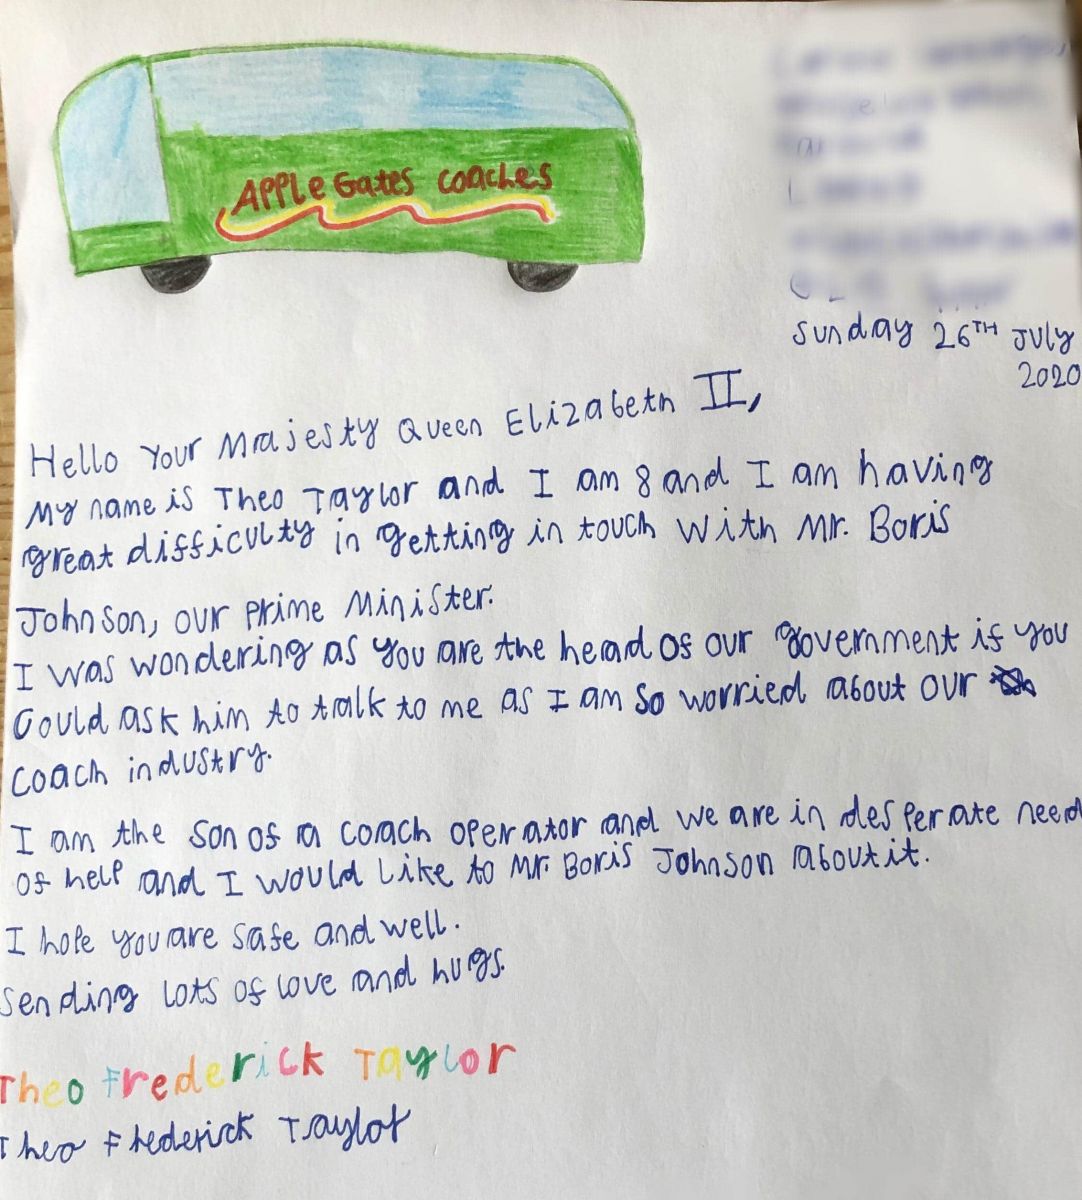 APPLE Gates coaches
Sunday 26TH July
2020
Hello Your Majesty Queen Elizabeth II,
My name is Theo Taylor and I am 8 and I am having
great difficulty in getting in touch with Mr. Boris
Johnson, our prime Minister.
I was wondering as you are the head of our government if you
Could ask him to talk to me as I am so worried about our
coach industry.
I am the son of a coach operator and we are in desperate need
of help and I would like to Mr. Boris Johnson about it.
I hope you are safe and well.
Sending lots of love and hugs.
Theo Frederick Taylor
Theo Frederick Taylor